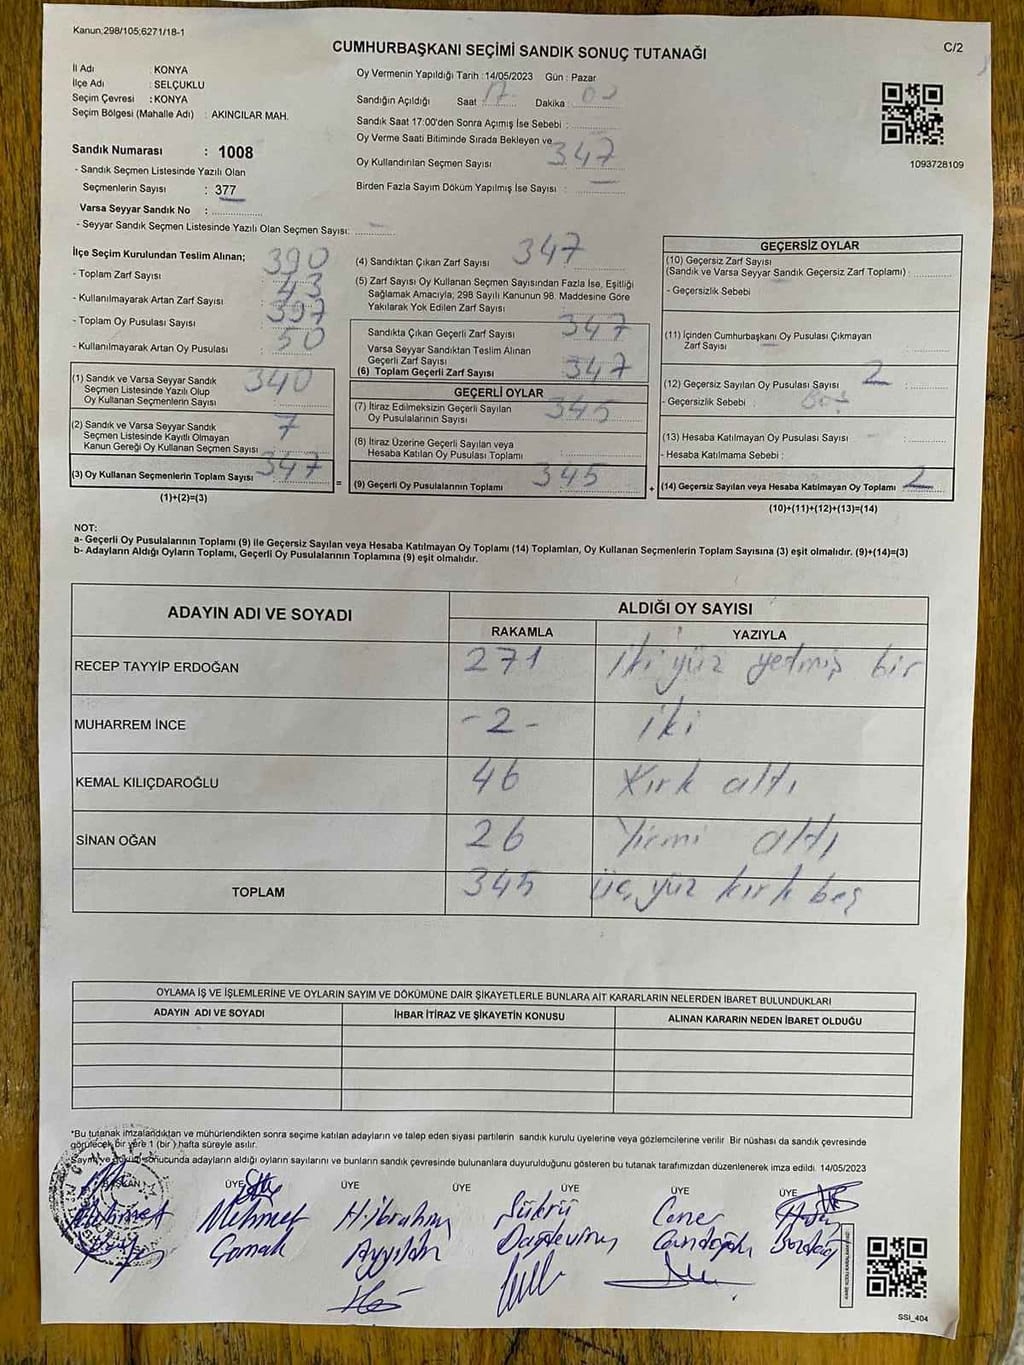 Kanun;298/105;6271/18-1
CUMHURBAŞKANI SEÇİMİ SANDIK SONUÇ TUTANAĞI
C/2
İl Adı : KONYA
İlçe Adı : SELÇUKLU
Seçim Çevresi : KONYA
Seçim Bölgesi (Mahalle Adı) : AKINCILAR MAH.
Sandık Numarası : 1008
- Sandık Seçmen Listesinde Yazılı Olan
Seçmenlerin Sayısı : 377
Varsa Seyyar Sandık No :
- Seyyar Sandık Seçmen Listesinde Yazılı Olan Seçmen Sayısı: -
Oy Vermenin Yapıldığı Tarih :14/05/2023 Gün : Pazar
Sandığın Açıldığı Saat 17 Dakika : 00
Sandık Saat 17:00'den Sonra Açımış İse Sebebi :
Oy Verme Saati Bitiminde Sırada Bekleyen ve
Oy Kullandırılan Seçmen Sayısı 347
Birden Fazla Sayım Döküm Yapılmış İse Sayısı : —
1093728109
İlçe Seçim Kurulundan Teslim Alınan;
- Toplam Zarf Sayısı : 390
- Kullanılmayarak Artan Zarf Sayısı : 43
- Toplam Oy Pusulası Sayısı : 397
- Kullanılmayarak Artan Oy Pusulası : 50
(1) Sandık ve Varsa Seyyar Sandık
Seçmen Listesinde Yazılı Olup
Oy Kullanan Seçmenlerin Sayısı : 340
(2) Sandık ve Varsa Seyyar Sandık
Seçmen Listesinde Kayıtlı Olmayan
Kanun Gereği Oy Kullanan Seçmen Sayısı : 7
(3) Oy Kullanan Seçmenlerin Toplam Sayısı : 347
(1)+(2)=(3)
=
(4) Sandıktan Çıkan Zarf Sayısı : 347
(5) Zarf Sayısı Oy Kullanan Seçmen Sayısından Fazla İse, Eşitliği
Sağlamak Amacıyla; 298 Sayılı Kanunun 98. Maddesine Göre
Yakılarak Yok Edilen Zarf Sayısı :
Sandıkta Çıkan Geçerli Zarf Sayısı : 347
Varsa Seyyar Sandıktan Teslim Alınan
Geçerli Zarf Sayısı :
(6) Toplam Geçerli Zarf Sayısı : 347
GEÇERLİ OYLAR
(7) İtiraz Edilmeksizin Geçerli Sayılan
Oy Pusulalarının Sayısı : 345
(8) İtiraz Üzerine Geçerli Sayılan veya
Hesaba Katılan Oy Pusulası Toplamı :
(9) Geçerli Oy Pusulalarının Toplamı : 345
+
GEÇERSİZ OYLAR
(10) Geçersiz Zarf Sayısı
(Sandık ve Varsa Seyyar Sandık Geçersiz Zarf Toplamı) :
- Geçersizlik Sebebi
(11) İçinden Cumhurbaşkanı Oy Pusulası Çıkmayan
Zarf Sayısı :
(12) Geçersiz Sayılan Oy Pusulası Sayısı 2
- Geçersizlik Sebebi :
(13) Hesaba Katılmayan Oy Pusulası Sayısı - :
- Hesaba Katılmama Sebebi :
(14) Geçersiz Sayılan veya Hesaba Katılmayan Oy Toplamı 2
(10)+(11)+(12)+(13)=(14)
NOT:
a- Geçerli Oy Pusulalarının Toplamı (9) ile Geçersiz Sayılan veya Hesaba Katılmayan Oy Toplamı (14) Toplamları, Oy Kullanan Seçmenlerin Toplam Sayısına (3) eşit olmalıdır. (9)+(14)=(3)
b- Adayların Aldığı Oyların Toplamı, Geçerli Oy Pusulalarının Toplamına (9) eşit olmalıdır.
ADAYIN ADI VE SOYADI ALDIĞI OY SAYISI
RAKAMLA YAZIYLA
RECEP TAYYİP ERDOĞAN 271 iki yüz yetmiş bir
MUHARREM İNCE -2- iki
KEMAL KILIÇDAROĞLU 46 Kırk altı
SİNAN OĞAN 26 Yirmi altı
TOPLAM 345 üç yüz kırk beş
OYLAMA İŞ VE İŞLEMLERİNE VE OYLARIN SAYIM VE DÖKÜMÜNE DAİR ŞİKAYETLERLE BUNLARA AİT KARARLARIN NELERDEN İBARET BULUNDUKLARI
ADAYIN ADI VE SOYADI İHBAR İTİRAZ VE ŞİKAYETİN KONUSU ALINAN KARARIN NEDEN İBARET OLDUĞU
*Bu tutanak imzalandıktan ve mühürlendikten sonra seçime katılan adayların ve talep eden siyasi partilerin sandık kurulu üyelerine veya gözlemcilerine verilir Bir nüshası da sandık çevresinde
görülecek bir yere 1 (bir ) hafta süreyle asılır.
Sayım ve döküm sonucunda adayların aldığı oyların sayılarını ve bunların sandık çevresinde bulunanlara duyurulduğunu gösteren bu tutanak tarafımızdan düzenlenerek imza edildi. 14/05/2023
BAŞKAN ÜYE ÜYE ÜYE ÜYE ÜYE ÜYE
Mehmet Mehmet H.ibrahim Şükrü Caner
SSİ_404